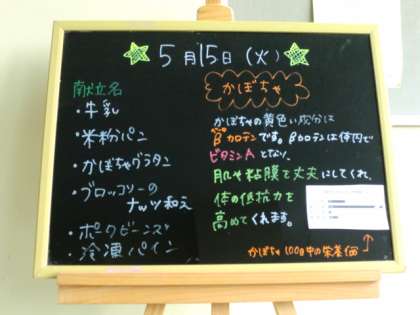 5月15日（火）
献立名
・牛乳
・米粉パン
・かぼちゃグラタン
・ブロッコリーの
ナッツ和え
・ポークビーンズ
冷凍パイン
かぼちゃ
かぼちゃの黄色い成分は
βカロテンです。βカロテンは体内で
ビタミンAとなり、
肌や粘膜を丈夫にしてくれ、
体の抵抗力を
高めてくれます。
かぼちゃ100g中の栄養価